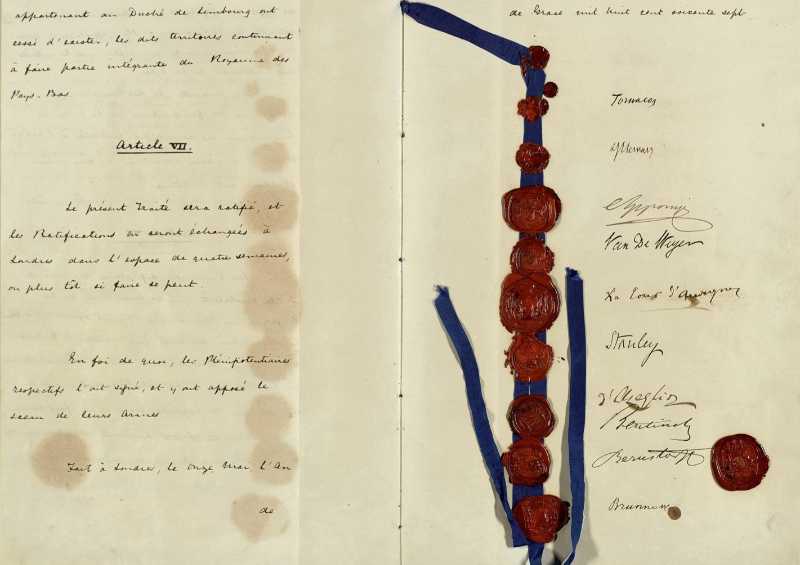 appartenant au Duché de Limbourg ont
cessé d'exister, les dits territoires continuant
à faire partie intégrante du Royaume des
Pays-Bas
Article VII.
Le présent Traité sera ratifié, et
les Ratifications en seront échangées à
Londres dans l'espace de quatre semaines,
ou plus tôt si faire se peut.
En foi de quoi, les Plénipotentiaires
respectifs l'ont signé, et y ont apposé le
sceau de leurs Armes
Fait à Londres, le onze Mai l'An
de
de Grace mil huit cent soixante sept
Tornaco
Apponyi
Van De Weyer
La Tour d'Auvergne
Stanley
d'Azeglio
Bentinck
Bernstorff
Brunnow